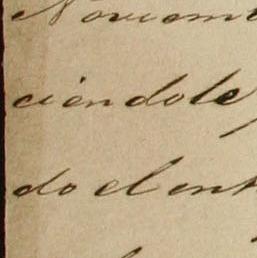 Noviem
ciendole
do el ent